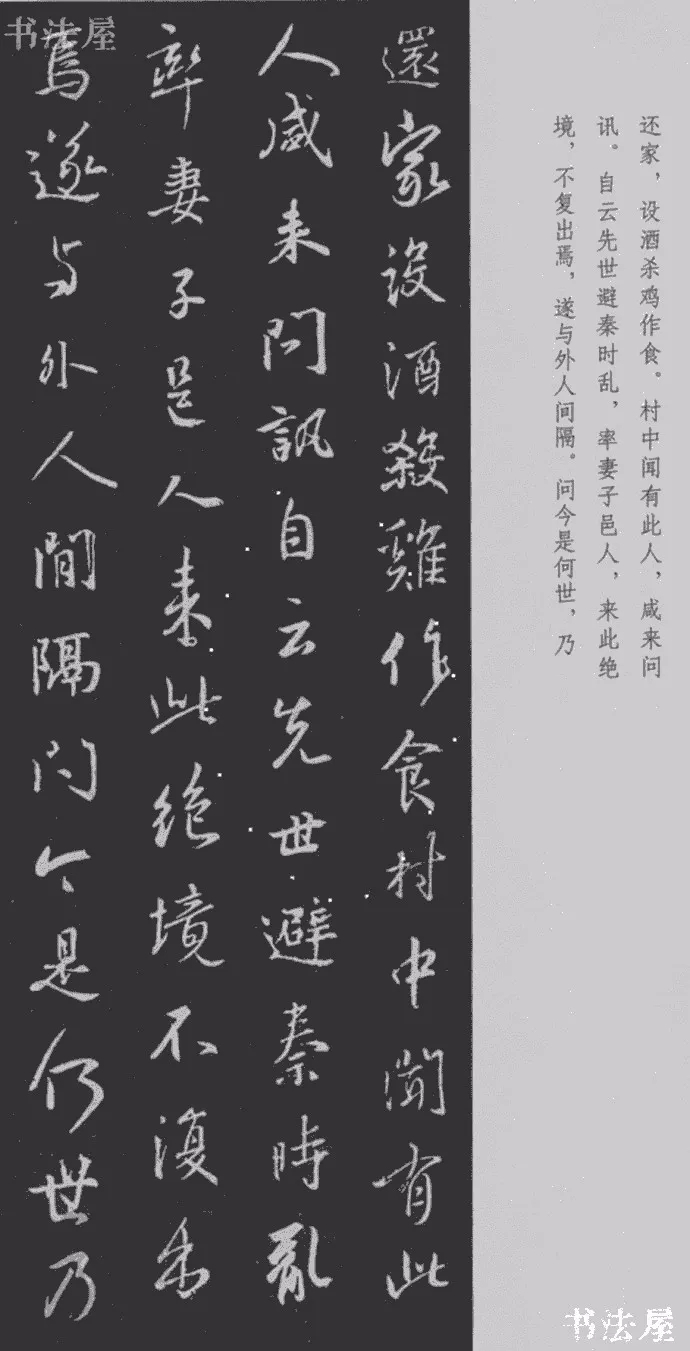 还家，设酒杀鸡作食。村中闻有此人，咸来问
讯。自云先世避秦时乱，率妻子邑人，来此绝
境，不复出焉，遂与外人间隔。问今是何世，乃
還家設酒殺雞作食村中聞有此
人咸来問訊自云先世避秦時亂
率妻子邑人来此絶境不復出
焉遂与外人間隔問今是何世乃
书法屋
书法屋